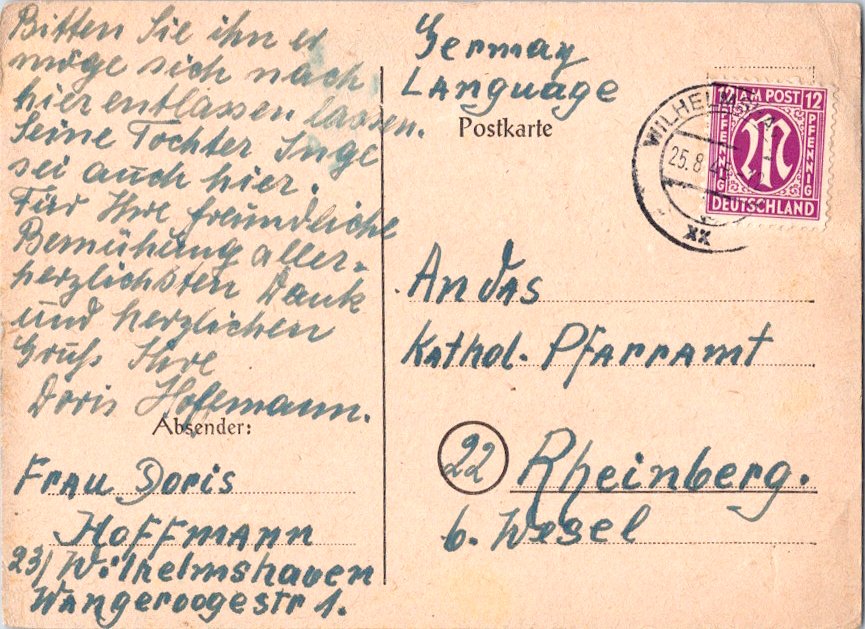 Bitten Sie ihn er
möge sich nach
hier entlassen lassen.
Seine Tochter Inge
sei auch hier.
Für Ihre freundliche
Bemühung aller-
herzlichsten Dank
und herzlichen
Gruß Ihre
Doris Hoffmann.
Absender:
Frau Doris
Hoffmann
23/ Wilhelmshaven
Wangeroogestr 1.
Germay
Language
Postkarte
WILHELMSHA
25.8.4
xx
12 AM POST 12
PFENNIG
M
PFENNIG
DEUTSCHLAND
An das
Kathol. Pfarramt
22 Rheinberg.
b. Wesel